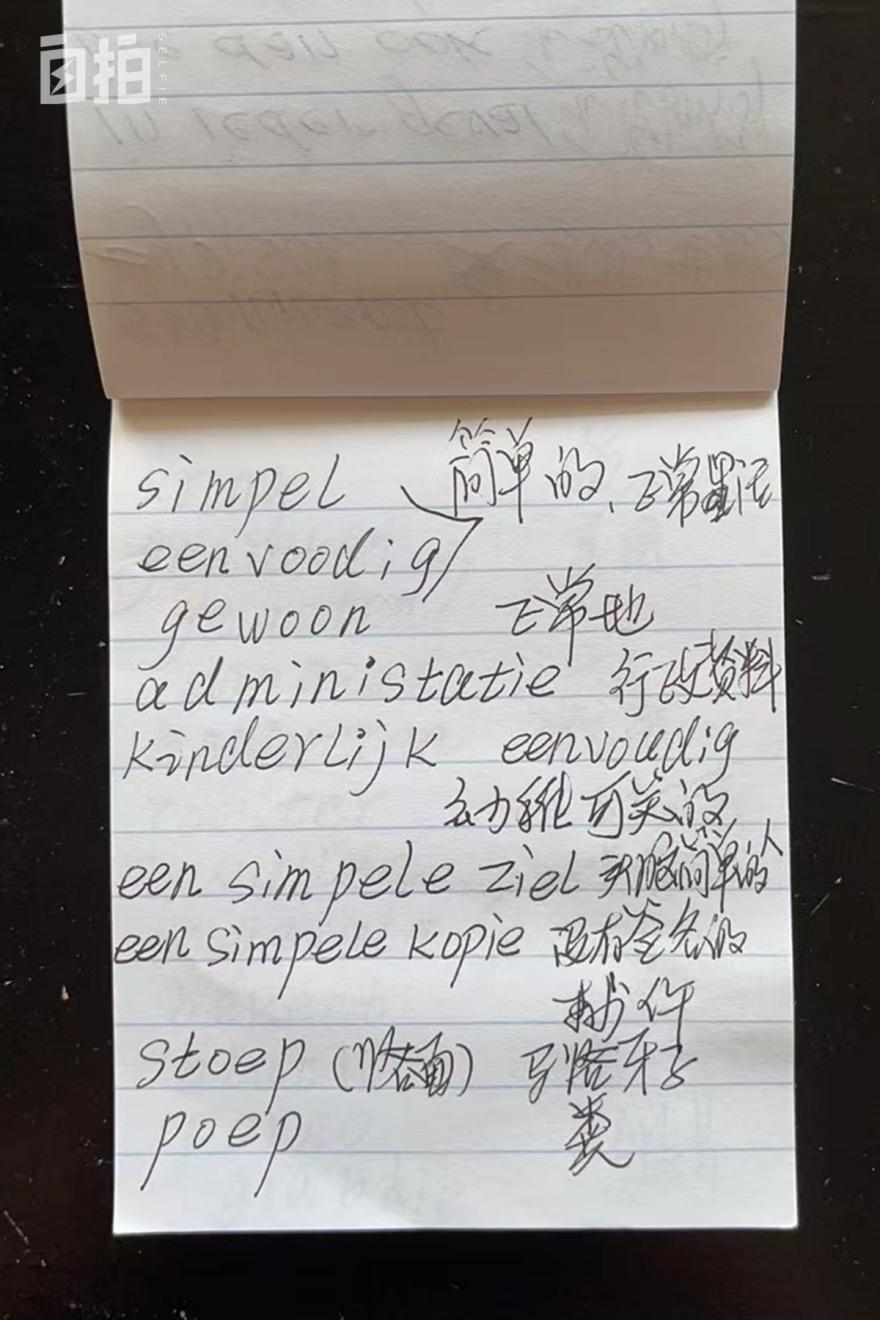 自拍 SELFIE
dan ook
in ieder geval
simpel 简单的、正常
eenvoodig
gewoon 正常地
administatie 行政资料
kinderlijk eenvoudig
幼稚可笑的
een simpele ziel 头脑简单的人
een simpele kopie 没有签名的
复件
stoep (路面) 马路牙子
poep 粪